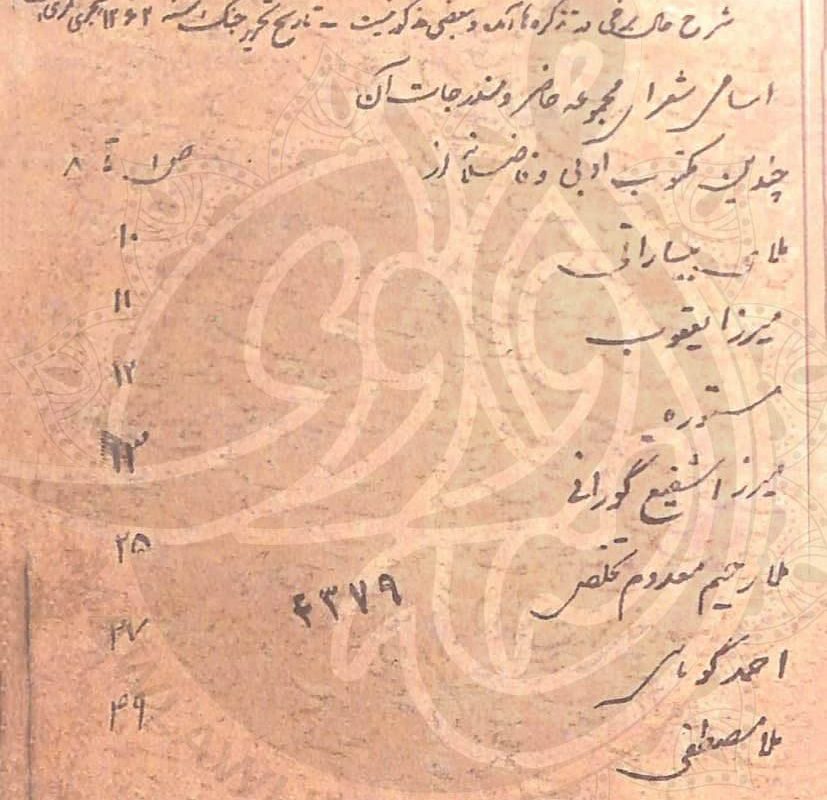 شرح حال برخی در تذکره‌ها آمده و بعضی مذکور نیست - تاریخ تحریر جنگ سنه ۱۲۶۲ هجری قمری
اسامی شعرای مجموعه حاضر و مندرجات آن
چندین مکتوب ادبی و فاضلانه از ص ۱ تا ۸
ملای بیسارانی ۱۰
میرزا یعقوب ۱۱
مستوره ۱۲
میرزا شفیع گورانی ۱۳
ملا رحیم معدوم تخلص ۲۵
۴۳۷۹
احمد کوماسی ۲۷
ملا مصطفی ۲۹